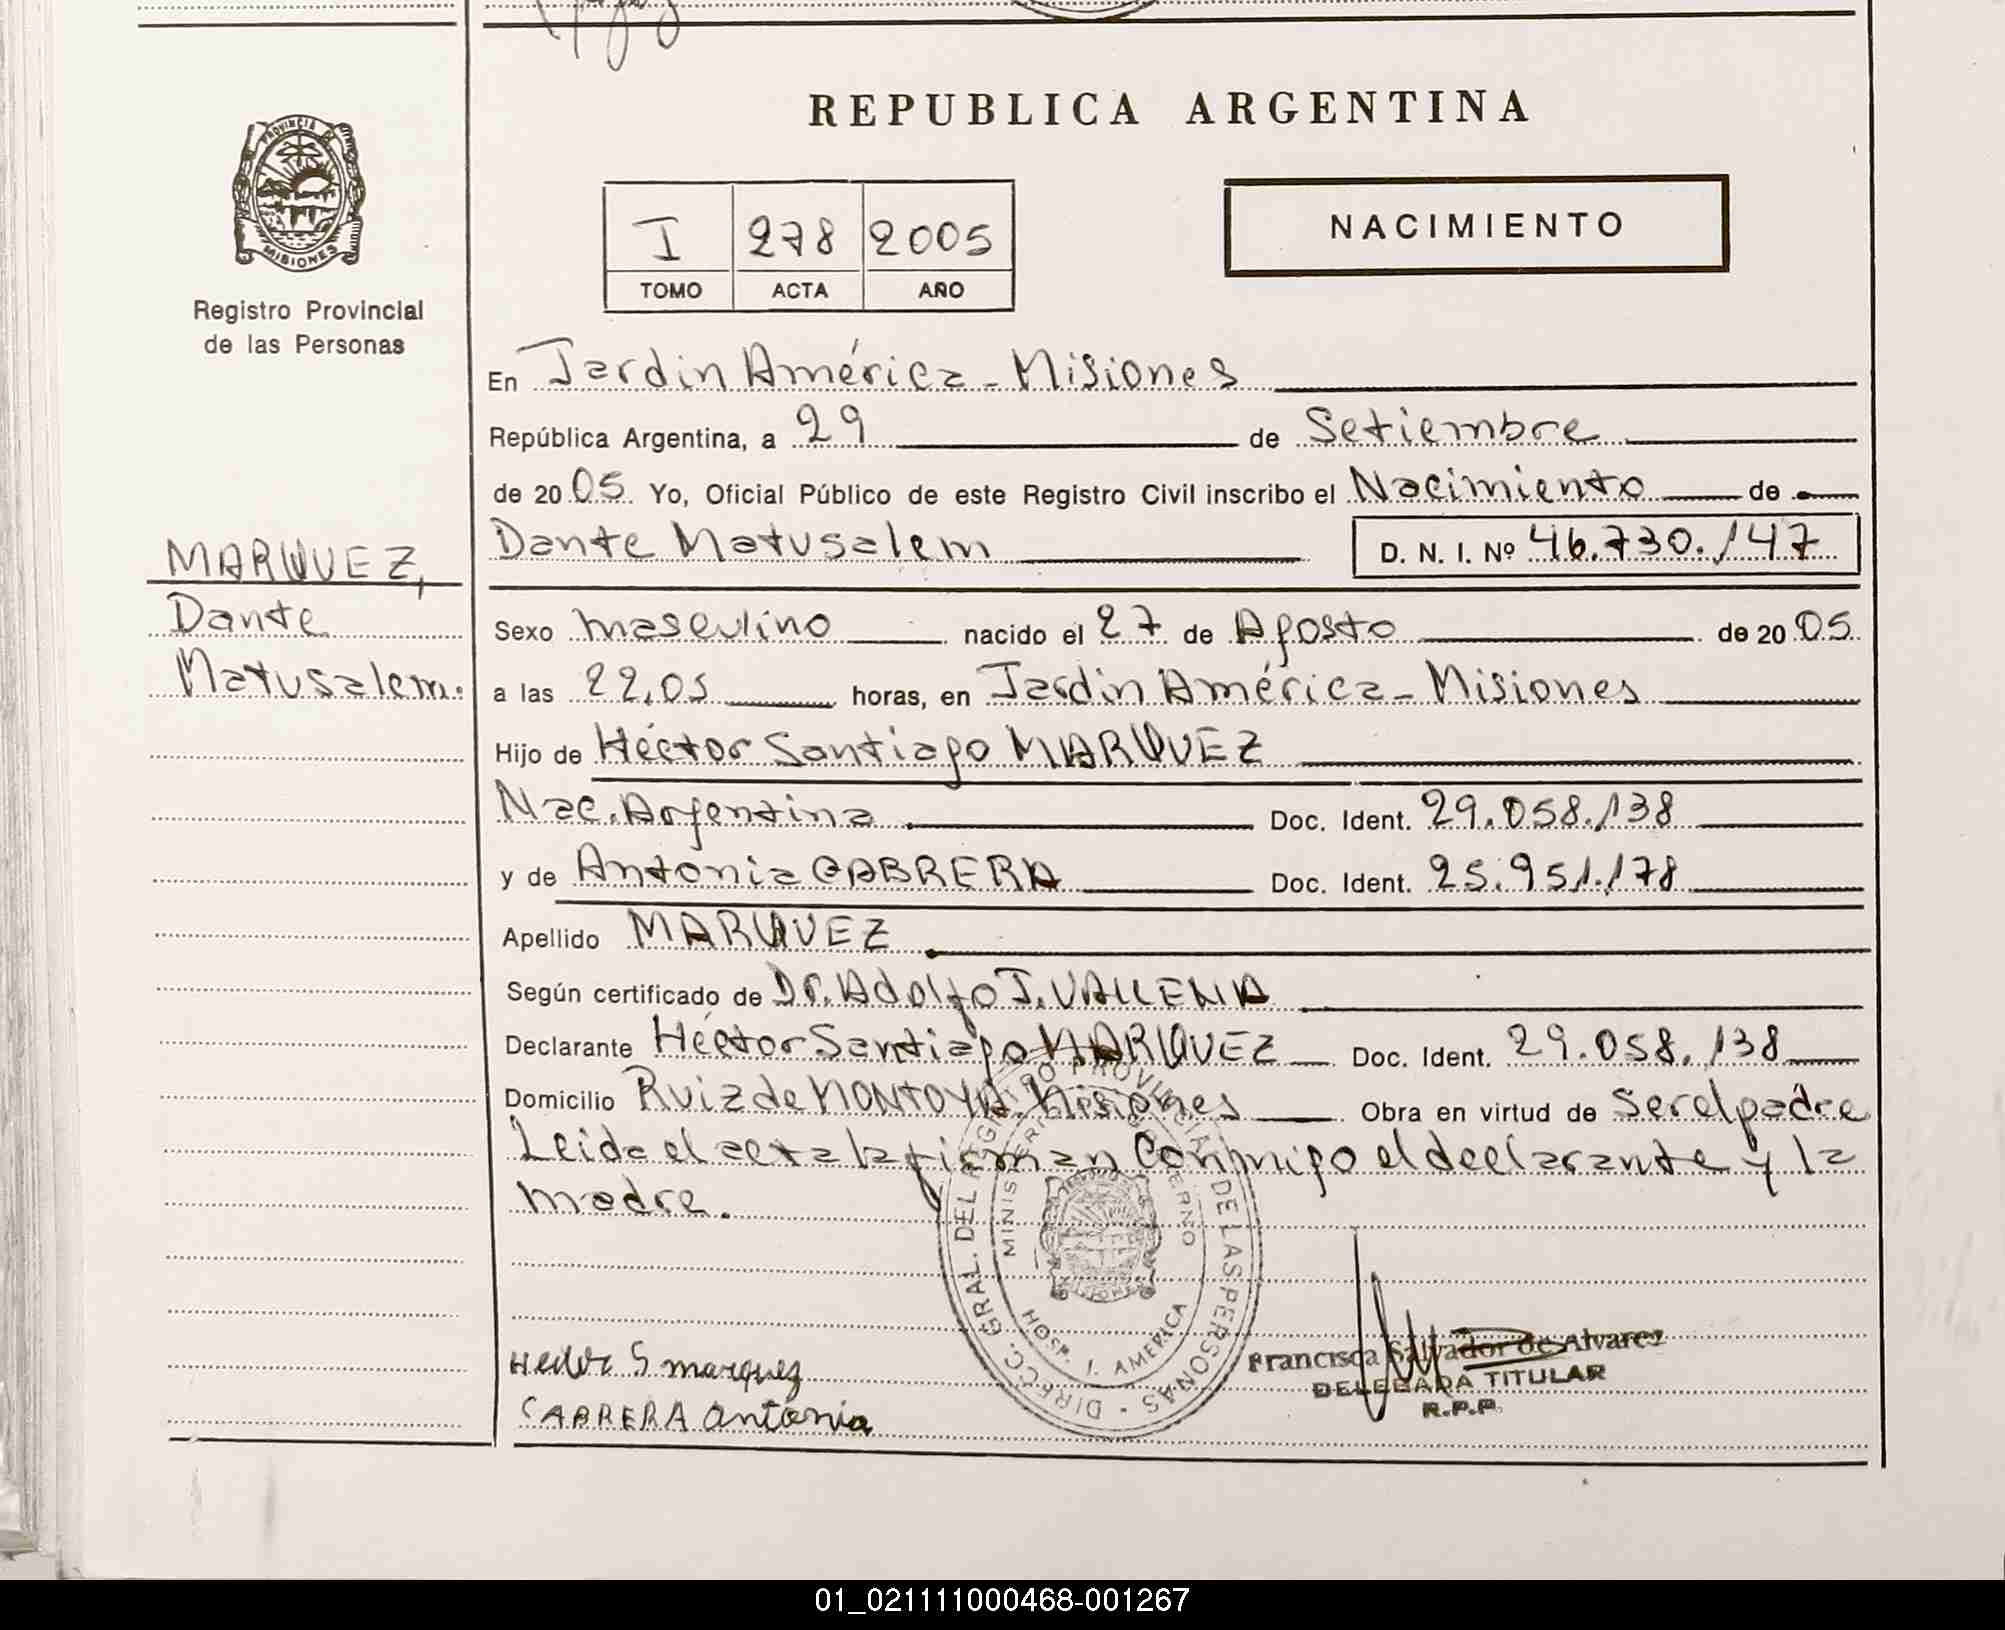 REPUBLICA ARGENTINA
PROVINCIA DE
MISIONES
Registro Provincial
de las Personas
I 278 2005
TOMO ACTA AÑO
NACIMIENTO
En Jardin América - Misiones
República Argentina, a 29 de Setiembre
de 2005. Yo, Oficial Público de este Registro Civil inscribo el Nacimiento de
Dante Matusalem D. N. I. Nº 46.730.147
MARQUEZ,
Dante
Matusalem.
Sexo masculino nacido el 27 de Agosto de 2005.
a las 22,05 horas, en Jardin América - Misiones
Hijo de Héctor Santiago MARQUEZ
Nac. Argentina Doc. Ident. 29.058.138
y de Antonia CABRERA Doc. Ident. 25.951.178
Apellido MARQUEZ
Según certificado de Dr. Adolfo J. VALLENA
Declarante Héctor Santiago MARQUEZ Doc. Ident. 29.058.138
Domicilio Ruiz de MONTOYA Misiones Obra en virtud de ser el padre
Leida el acta la firman conmigo el declarante y la
madre.
DIRECC. GRAL. DEL REGISTRO PROVINCIAL DE LAS PERSONAS
MINISTERIO DE GOBIERNO
HOSP. J. AMERICA
MISIONES
Hector S marquez
CABRERA Antonia
Francisca Salvador de Alvarez
DELEGADA TITULAR
R.P.P.
01_021111000468-001267